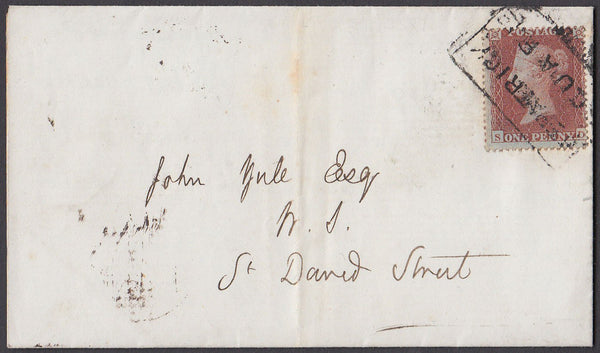 POSTAGE
S ONE PENNY D
John Yule Esq
W. S.
St David Street